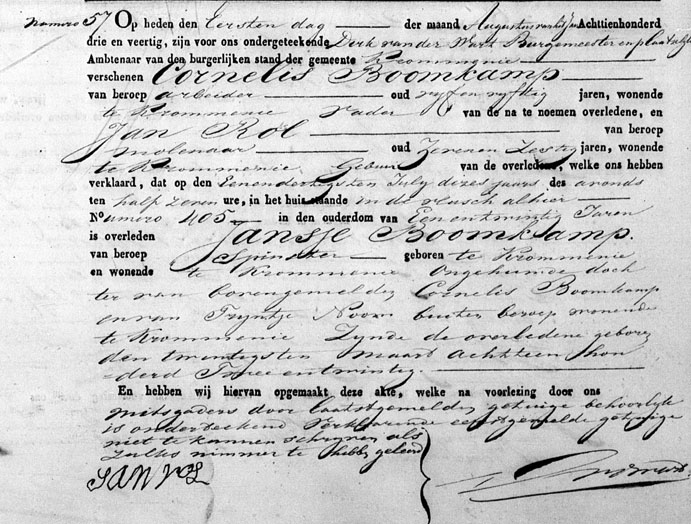 Numero 57 Op heden den Eersten dag der maand Augustus van het jaar Achttienhonderd
drie en veertig, zijn voor ons ondergeteekende Dirk van der Wart Burgemeester en plaatselijk
Ambtenaar van den burgerlijken stand der gemeente Krommenie
verschenen Cornelis Boomkamp
van beroep arbeider oud vyf en vyftig jaren, wonende
te Krommenie vader van de na te noemen overledene, en
Jan Kol van beroep
molenaar oud Zeven en Zestig jaren, wonende
te Krommenie Gebuur van de overledene, welke ons hebben
verklaard, dat op den Eenendertigsten July dezes jaars des avonds
ten half zeven ure, in het huis staande in de alhier
Numero 405 in den ouderdom van Een en twintig Jaren
is overleden Jansje Boomkamp.
van beroep Spinster geboren te Krommenie
en wonende te Krommenie Ongehuwde doch
ter van bovengemelden Cornelis Boomkamp
en van Tryntje Noom buiten beroep wonende
te Krommenie Zynde de overledene geboren
den twintigsten maart achttien hon
derd Twee en twintig
En hebben wij hiervan opgemaakt deze akte, welke na voorlezing door ons
mitsgaders door laatstgemelden getuige behoorlijk
is onderteekend Verklarende eerstgemelde getuige
niet te kunnen schryven als
zulks nimmer te hebben geleerd
JAN KOL